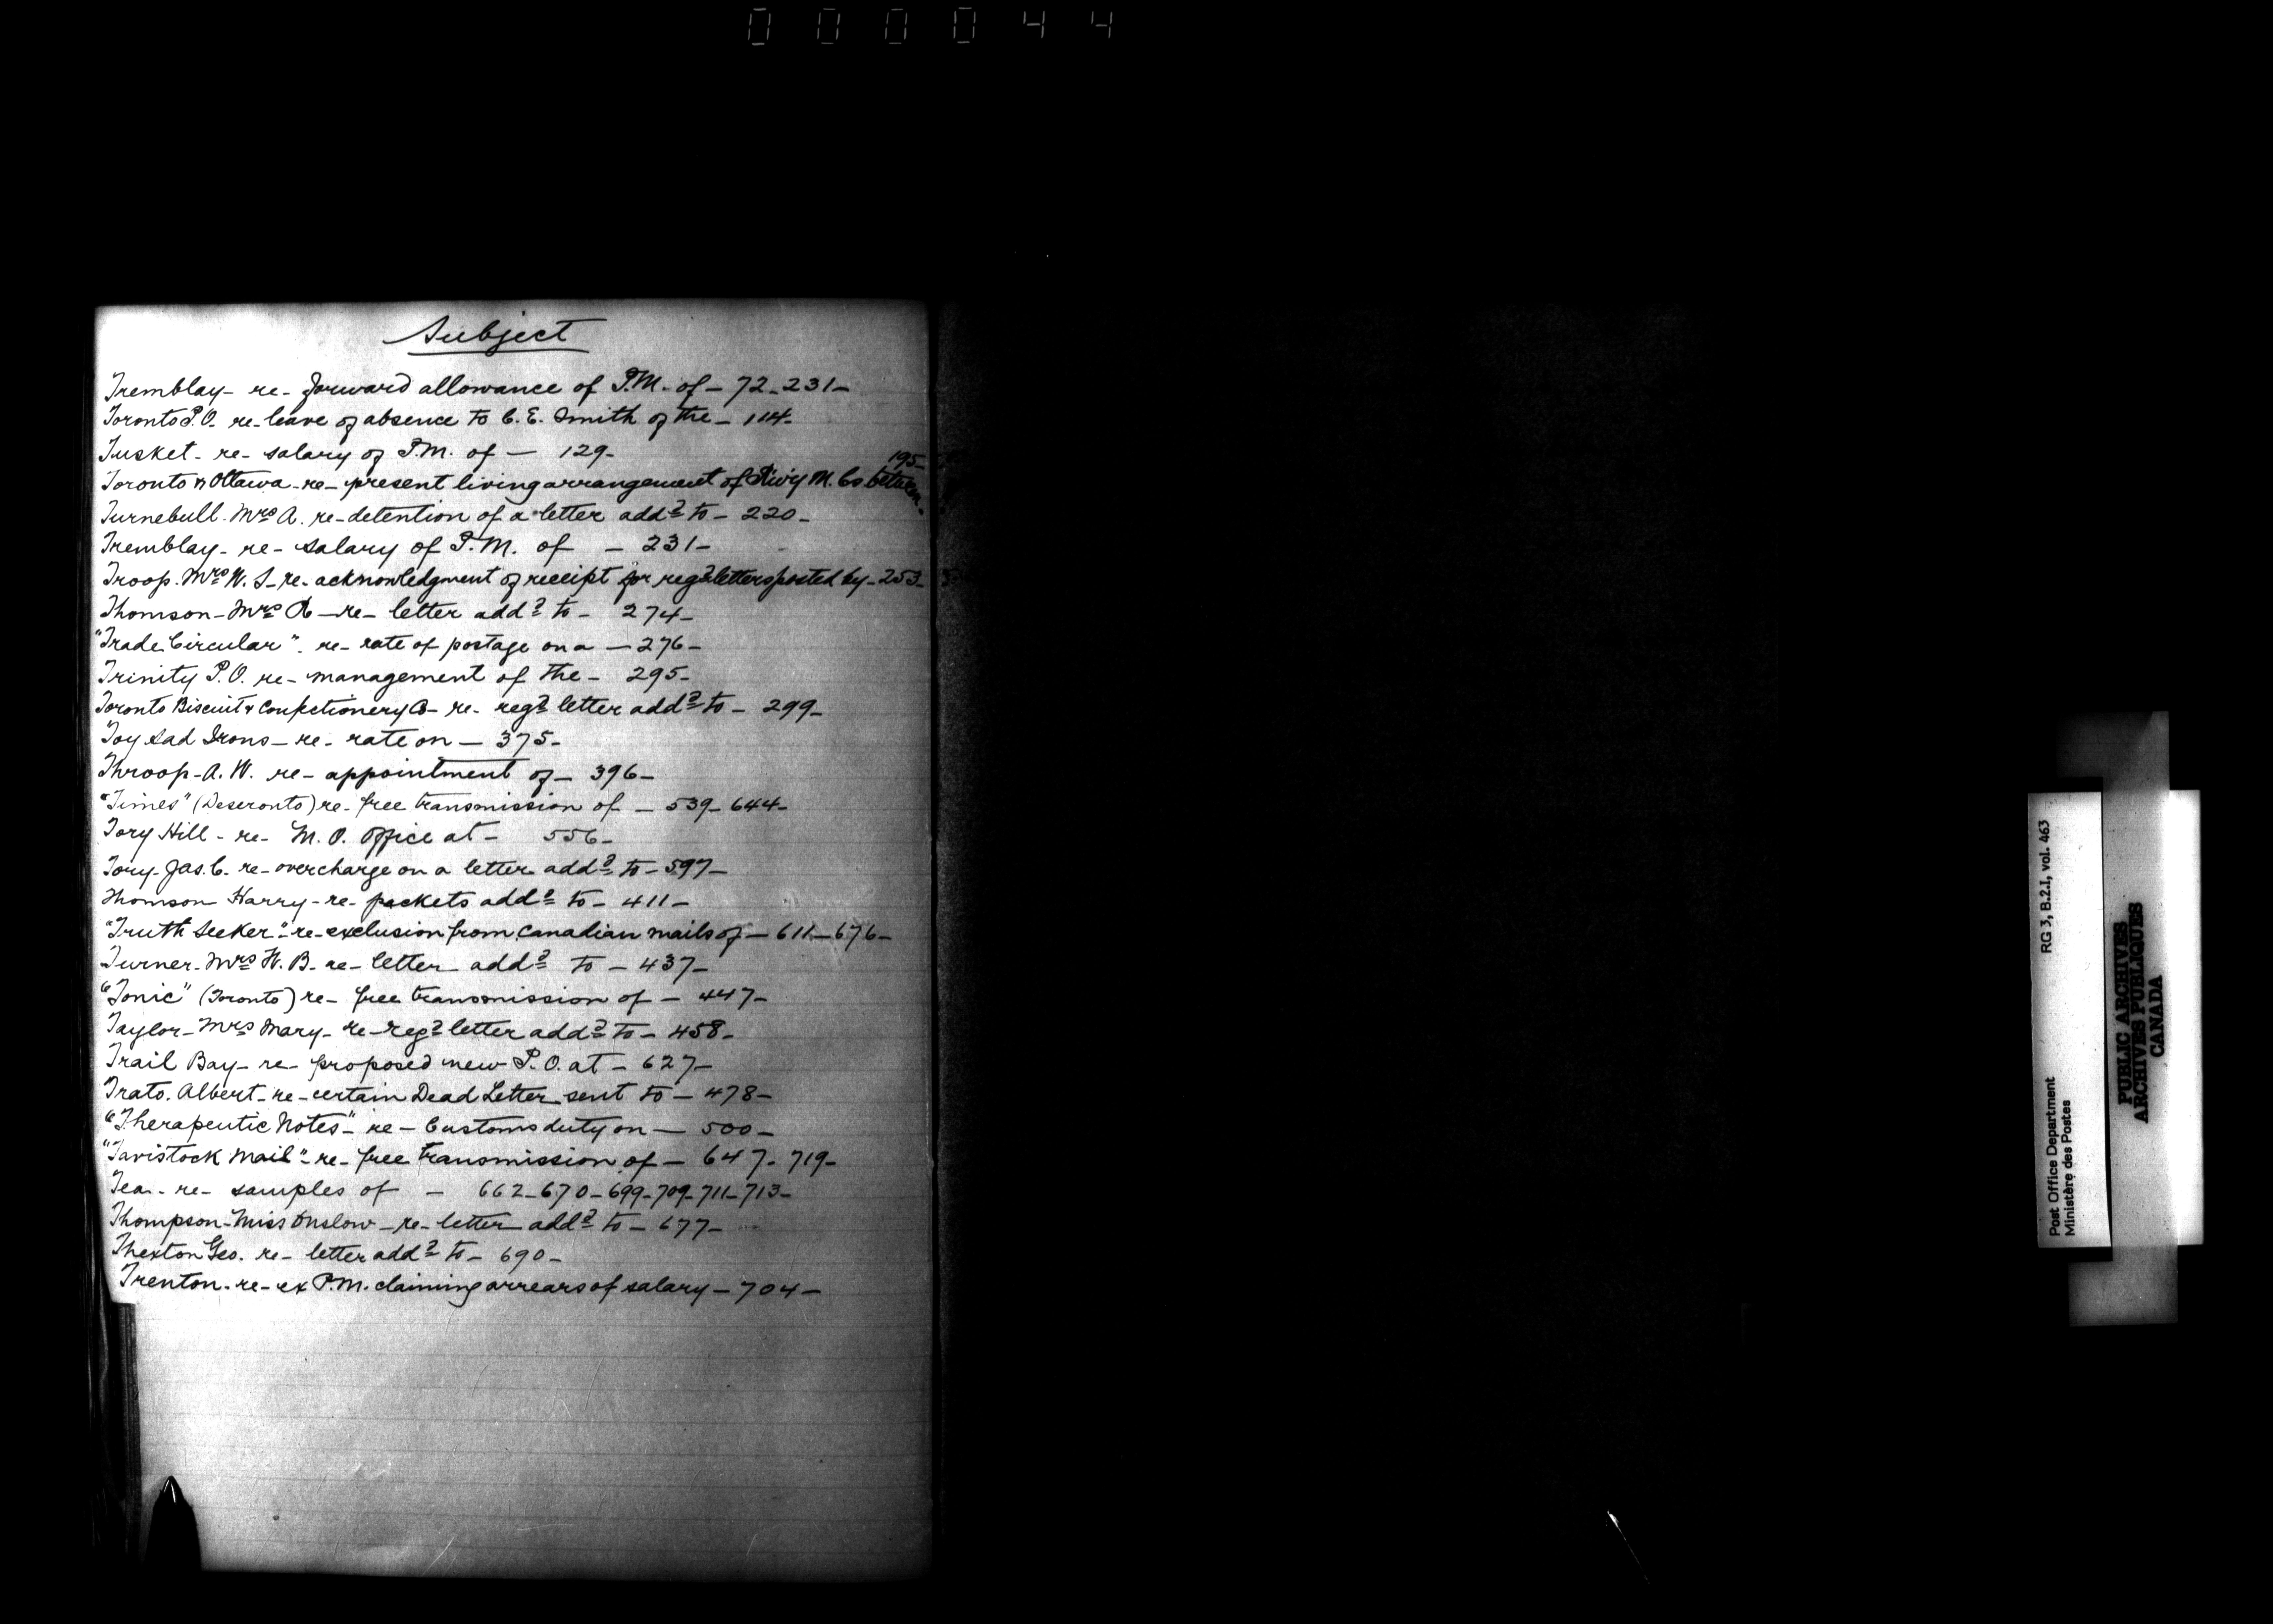 000044
Subject
Tremblay - re - forward allowance of P.M. of - 72 - 231 -
Toronto P.O. re - leave of absence to C. E. Smith of the - 114 -
Tusket - re - salary of P.M. of - 129 -
195 -
Toronto & Ottawa - re - present living arrangement of Rwy M. Cs between -
Turnebull. Mrs A. re - detention of a letter addd to - 220 -
Tremblay - re - salary of P.M. of - 231 -
Troop. Mrs W. S - re - acknowledgment of receipt for regd letters posted by - 253 -
Thomson - Mrs A - re - letter addd to - 274 -
"Trade Circular" - re - rate of postage on a - 276 -
Trinity P.O. re - management of the - 295 -
Toronto Biscuit & Confectionery Co - re - regd letter addd to - 299 -
Toy Sad Irons - re - rate on - 375 -
Throop - A. W. re - appointment of - 396 -
"Times" (Deseronto) re - free transmission of - 539 - 644 -
Tory Hill - re - M. O. Office at - 556 -
Tory - Jas. C. re - overcharge on a letter addd to - 597 -
Thomson Harry - re - packets addd to - 411 -
"Truth Seeker" - re - exclusion from Canadian mails of - 611 - 676 -
Turner - Mrs H. B. re - letter addd to - 437 -
"Tonic" (Toronto) re - free transmission of - 447 -
Taylor - Mrs Mary - re - regd letter addd to - 458 -
Trail Bay - re - proposed new P.O. at - 627 -
Trato. Albert - re - certain Dead Letter sent to - 478 -
"Therapeutic Notes" - re - Customs duty on - 500 -
"Tavistock Mail" - re - free transmission of - 647 - 719 -
Tea - re - samples of - 662 - 670 - 699 - 709 - 711 - 713 -
Thompson - Miss Onslow - re - letter addd to - 677 -
Thexton Geo. re - letter addd to - 690 -
Trenton - re - ex P.M. claiming arrears of salary - 704 -
Post Office Department
Ministère des Postes
RG 3, B.2.I, vol. 463
PUBLIC ARCHIVES
ARCHIVES PUBLIQUES
CANADA